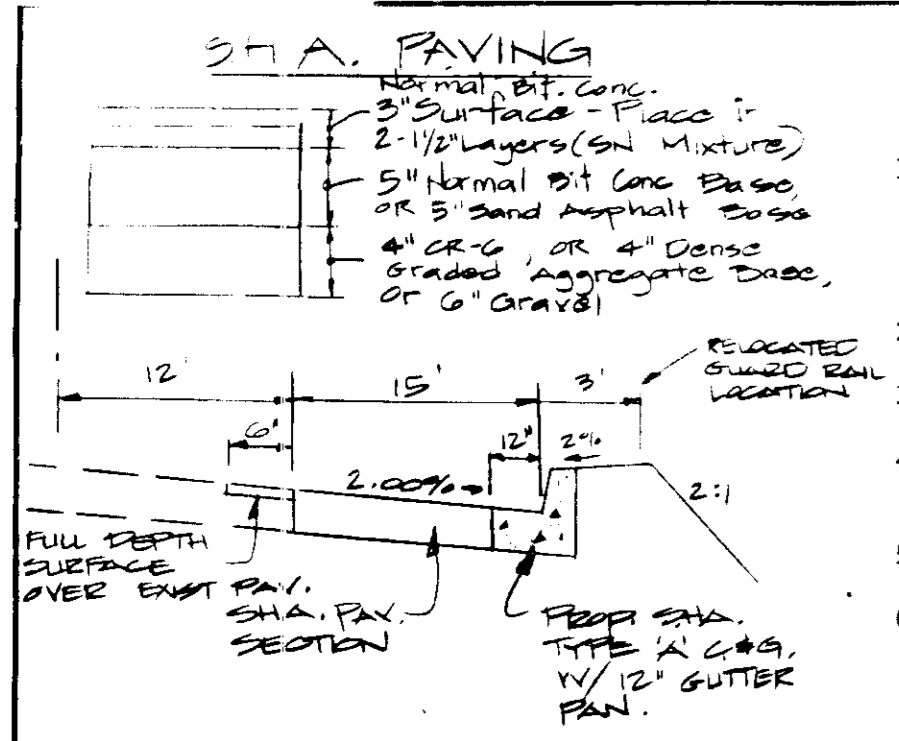 SHA. PAVING
Normal Bit. Conc.
3" Surface - Place in
2-1/2" Layers (SN Mixture)
5" Normal Bit Conc Base,
OR 5" Sand Asphalt Base
4" CR-6, OR 4" Dense
Graded Aggregate Base,
Or 6" Gravel
RELOCATED
GUARD RAIL
LOCATION
12'
15'
3'
6"
12"
2%
2.00%
2:1
FULL DEPTH
SURFACE
OVER EXIST PAV.
SHA. PAV.
SECTION
PROP. SHA.
TYPE 'A' C&G.
W/ 12" GUTTER
PAN.